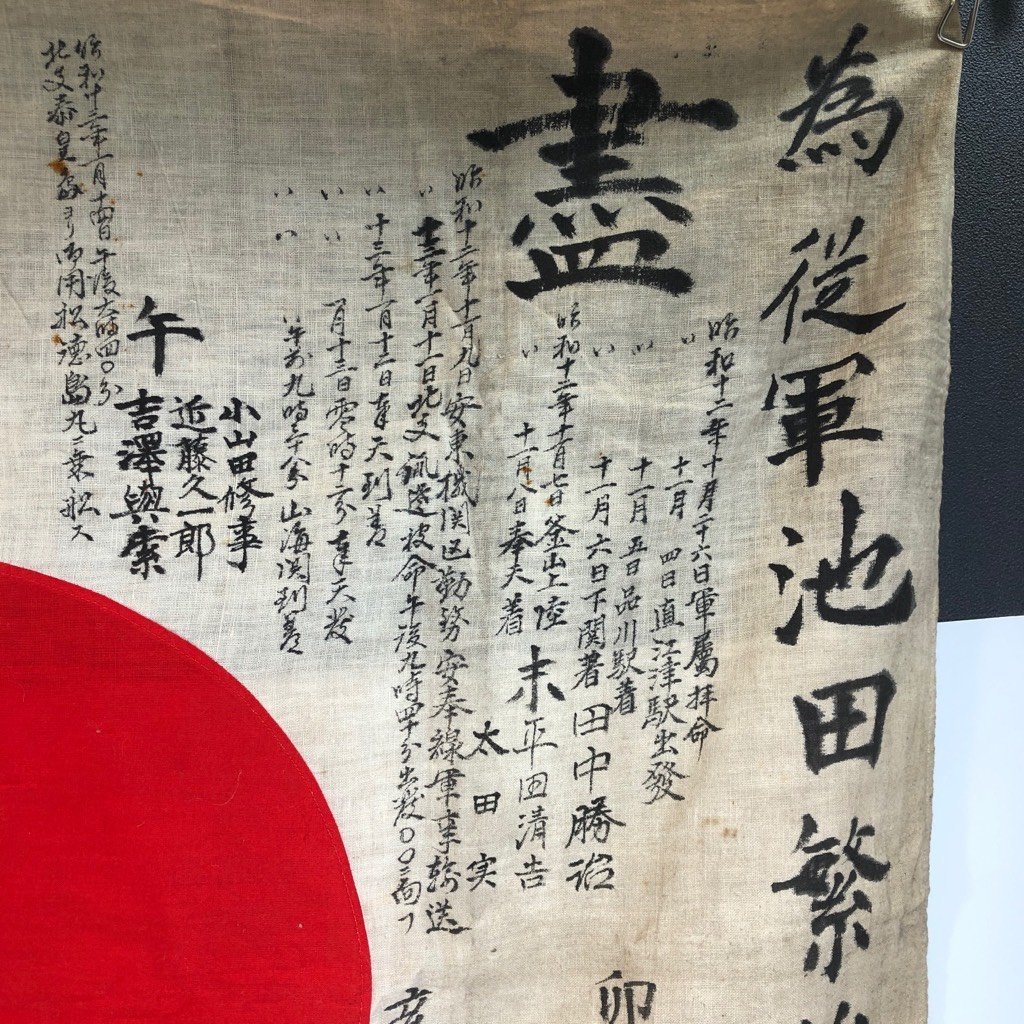 為従軍池田繁
盡
昭和十二年十月二十六日軍属拝命
〃 十一月 四日直江津駅出發
〃 十一月 五日品川駅着
〃 十一月 六日下関着
昭和十二年十一月七日釜山上陸
〃 十一月八日奉天着
昭和十二年十一月九日安東機関区勤務安奉線軍事輸送
十三年一月十一日北支派遣拝命午後九時四十分出発
〃 十三年一月十二日奉天到着
〃 〃 一月十三日零時十分奉天發
〃 〃 〃 午前九時十分山海関到着
田中勝治
未
平田清吉
太田実
小山田修事
近藤久一郎
吉澤與索
午
昭和十三年一月十四日午後六時四〇分
北支秦皇島ヨリ御用船徳島丸ニ乗船ス
卯